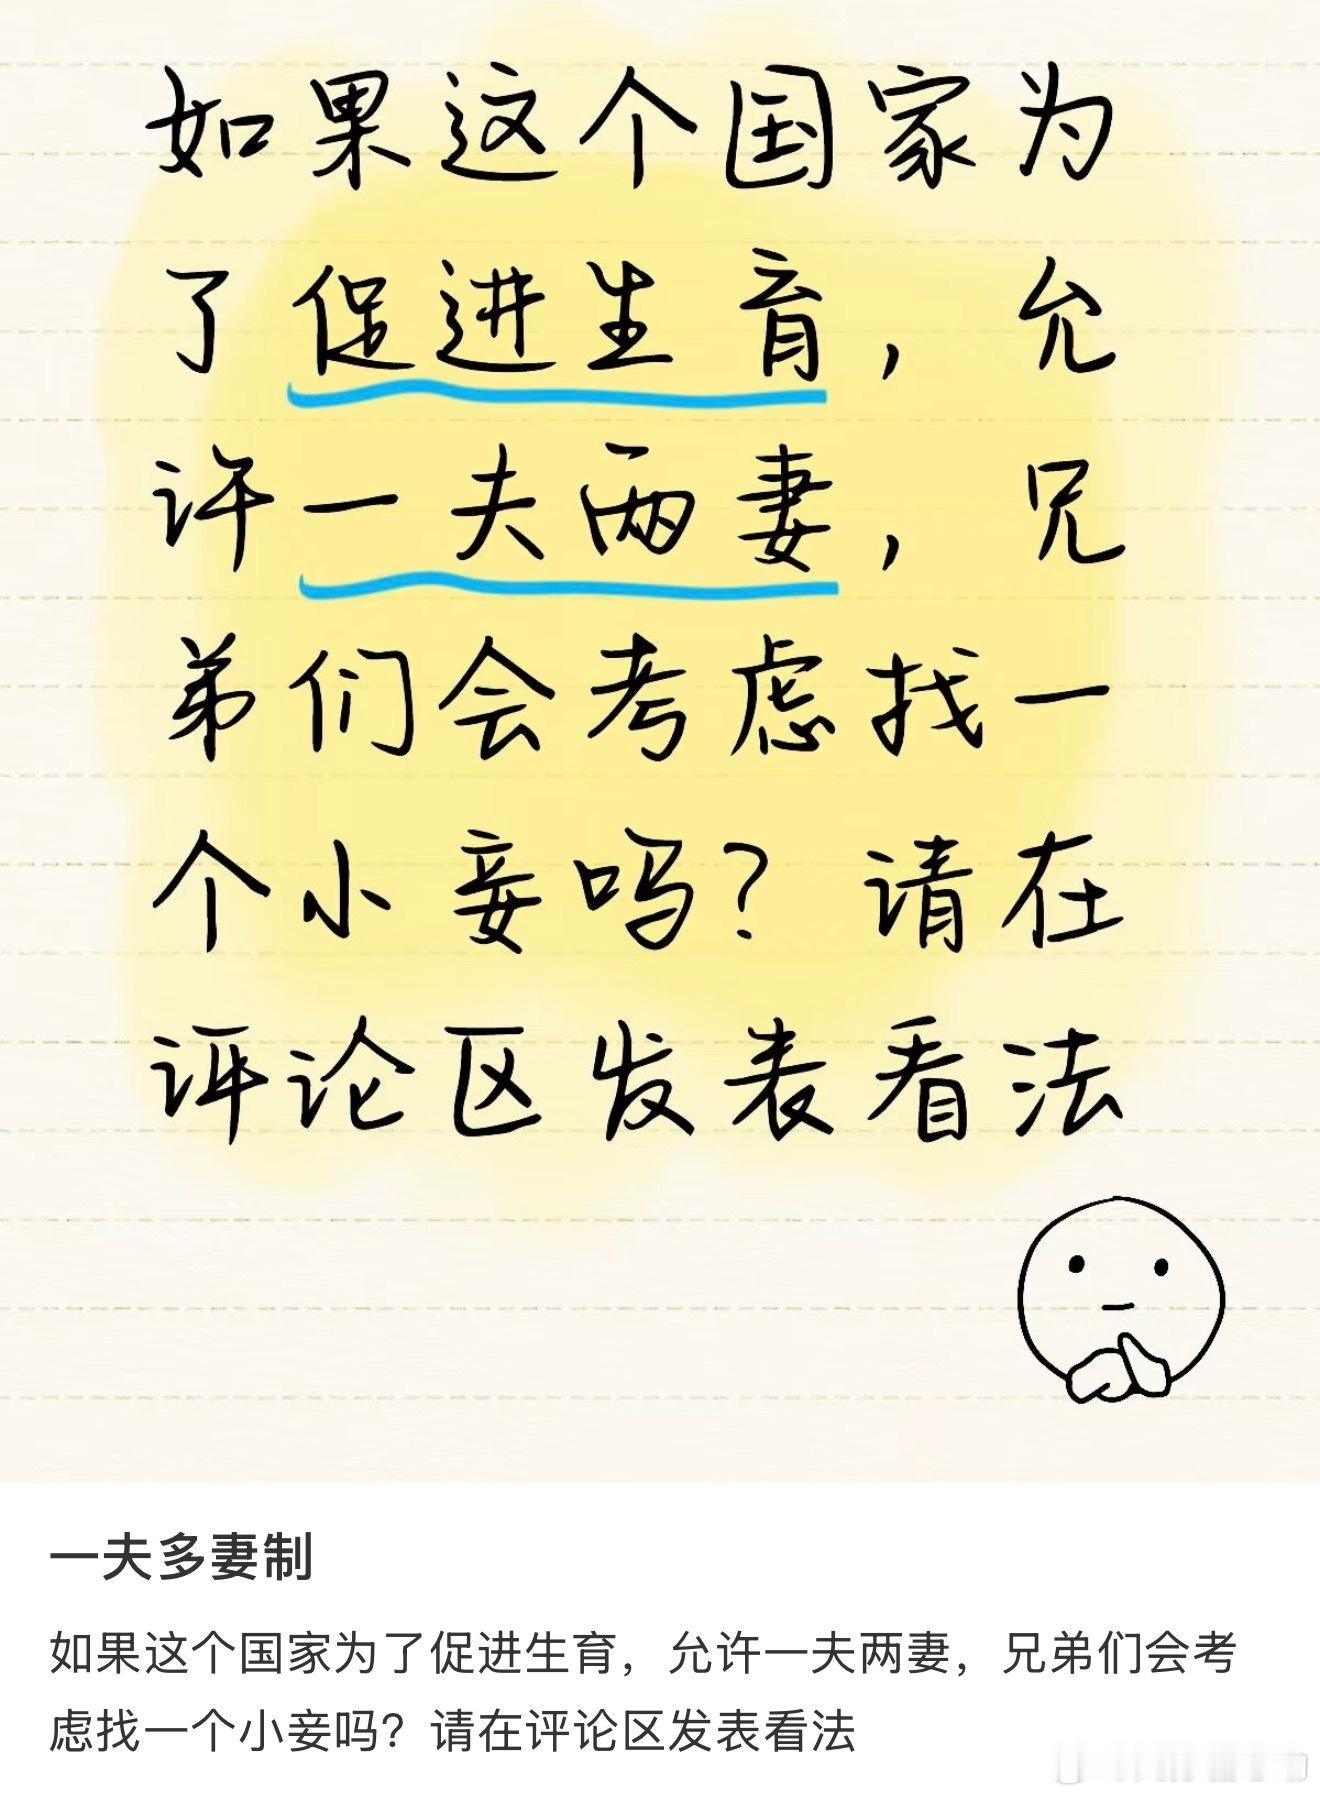 如果这个国家为
了促进生育，允
许一夫两妻，兄
弟们会考虑找一
个小妾吗？请在
评论区发表看法
一夫多妻制
如果这个国家为了促进生育，允许一夫两妻，兄弟们会考
虑找一个小妾吗？请在评论区发表看法